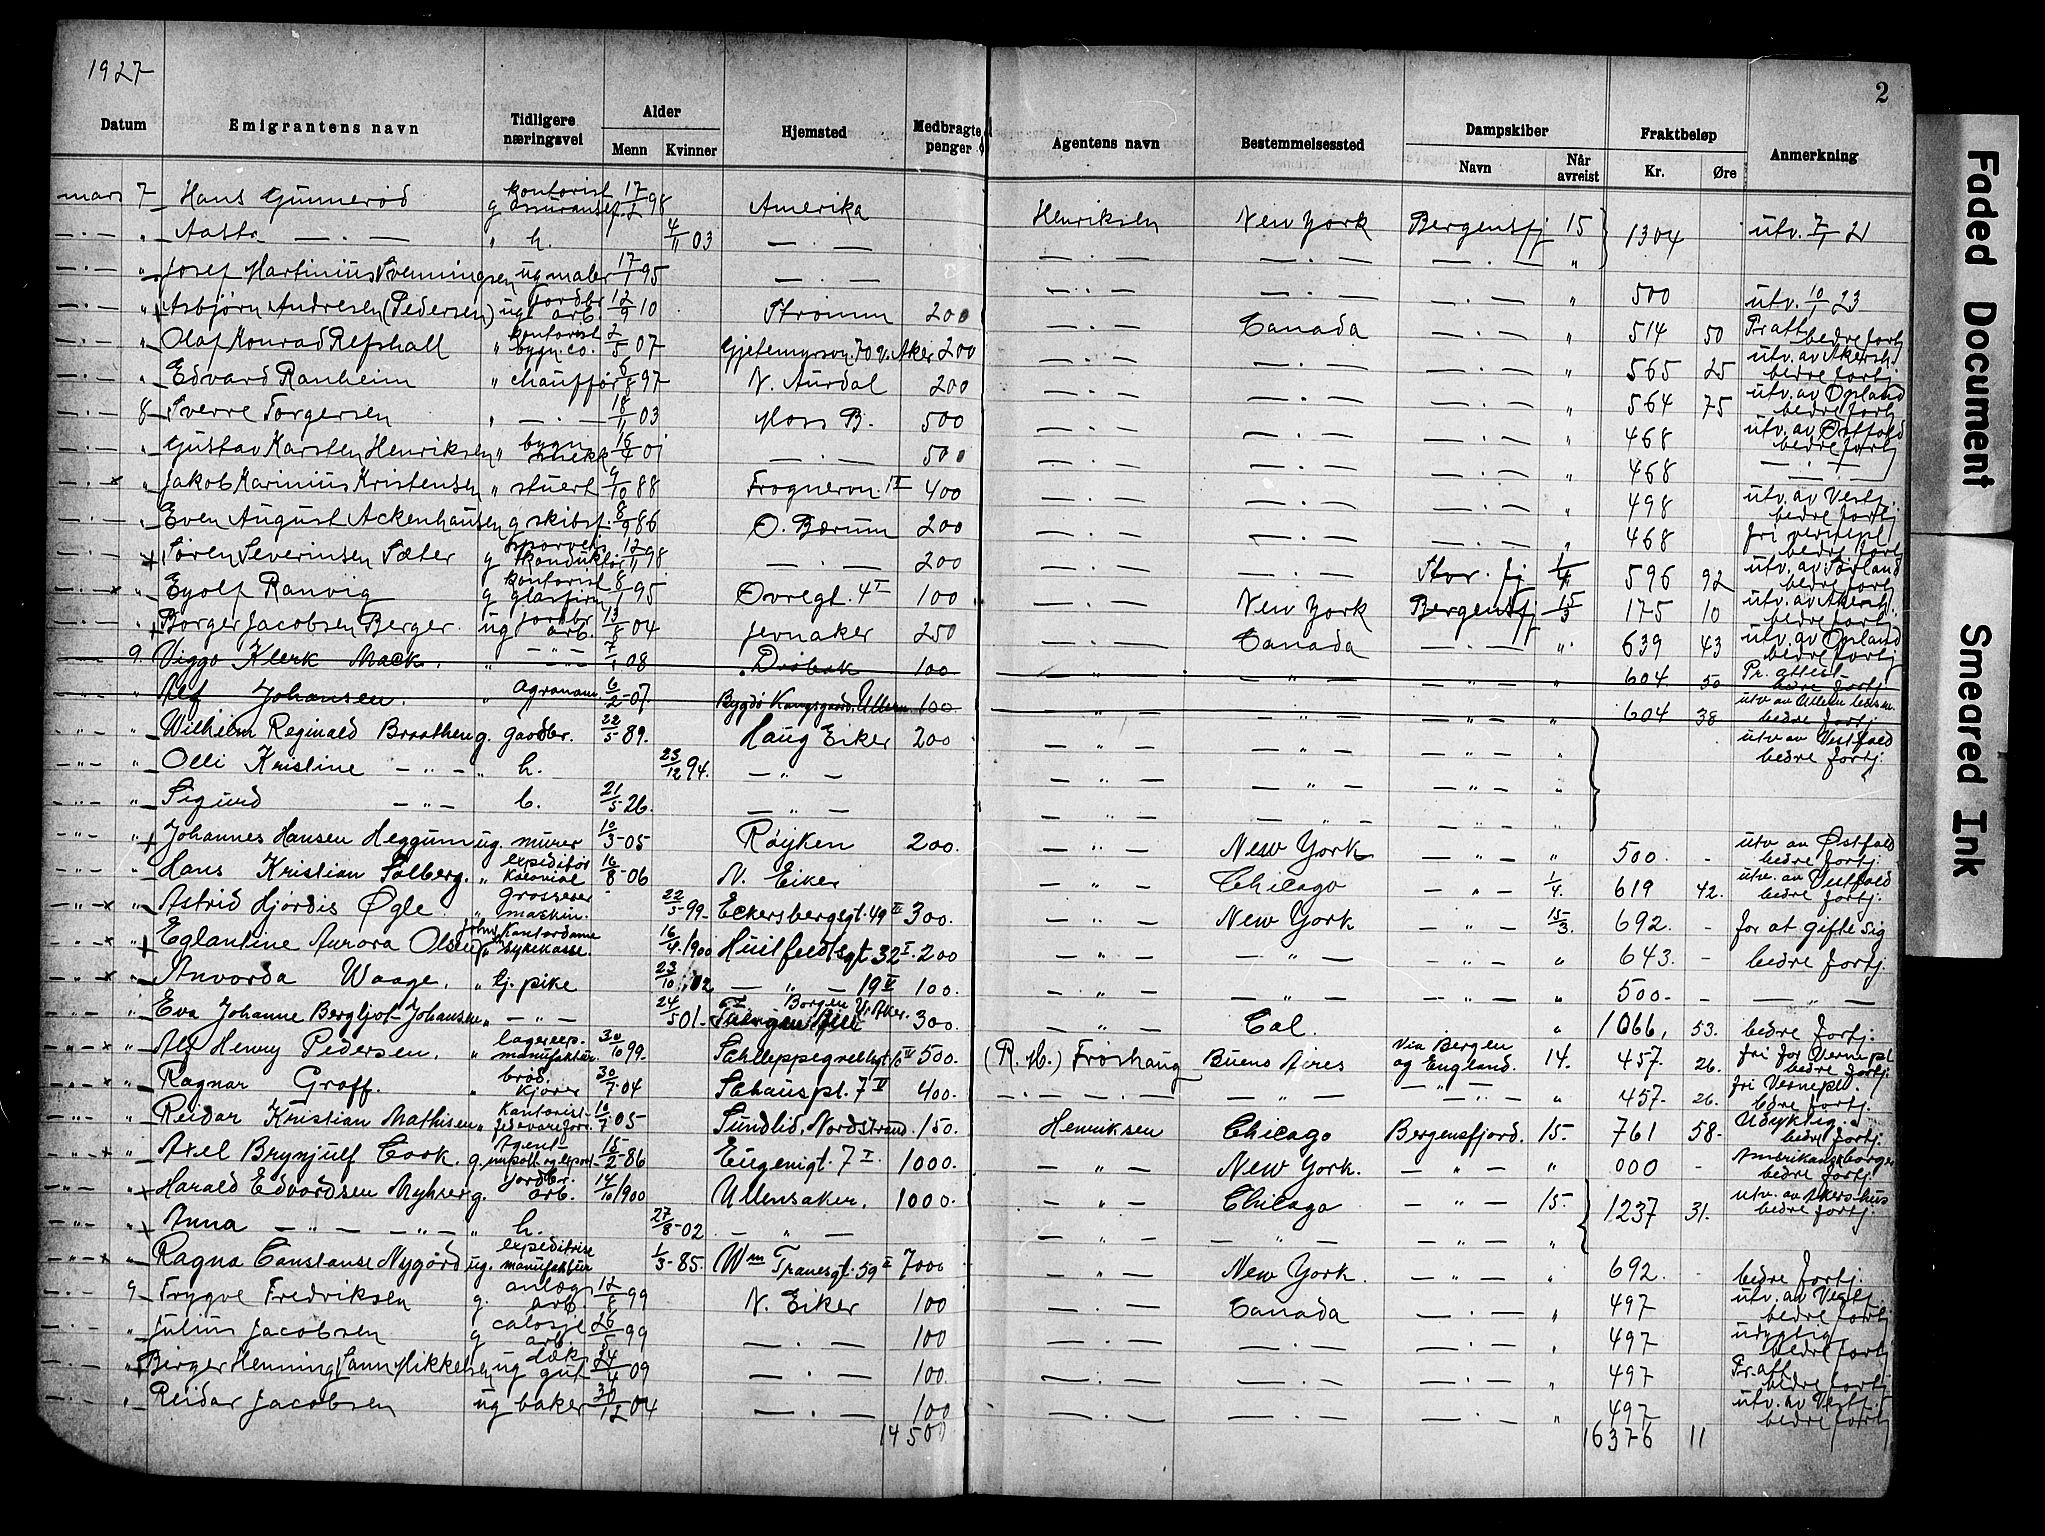 1927
2
Datum | Emigrantens navn | Tidligere næringsvei | Alder Menn Kvinner | Hjemsted | Medbragte penger | Agentens navn | Bestemmelsessted | Dampskiber Navn Når avreist | Fraktbeløp Kr. Øre | Anmerkning
mars 7 Hans Gunnerød g kontorist 17/2 98 Amerika Henriksen New York Bergensfj 15 1304 utv. 7/1 21
— . — " Aasta — . — " h. 4/11 03 — . — — . — — . — — . — "
— . — " Josef Martinius Svenningsen ug maler 17/1 95 — . — — . — — . — — . — " 500 utv. 10/1 23
— . — " Asbjørn Andresen (Pedersen) ug jordbr arb. 12/9 10 Strømm 200 — . — Canada — . — " 514 50 Pr att bedre fortj
— . — " Olaf Konrad Refshall " kontorist bygn. co. 2/5 07 Gjetemyrsvn. 70 V. Aker 200 — . — — . — — . — " 565 25 utv. av Akersh. bedre fortj
— . — " Edvard Ranheim " chauffør 6/8 97 N. Aurdal 200 — . — — . — — . — " 564 75 utv. av Opland bedre fortj
— . — 8 Sverre Torgersen " — . — 18/11 03 Moss B. 500 — . — — . — — . — " 468 utv. av Østfold bedre fortj
— . — " Gustav Karsten Henriksen " bygn. snekk 16/4 01 — . — 500 — . — — . — — . — " 468 — . —
— . — x " Jakob Karinius Kristensen " stuert 9/10 88 Frognervn. 1 II 400 — . — — . — — . — " 498 utv. av Vestf. bedre fortj
— . — " Even August Ackenhausen g skibst. 8/9 86 O. Bærum 200 — . — — . — — . — " 468 fri vernepl bedre fortj
— . — " Søren Severinsen Sæter g sporveis konduktør 12/11 98 — . — 200 — . — — . — Stav. fj 1/4 596 92 utv. av Sørland bedre fortj
— . — x " Eyolf Ranvig g kontorist glasfirm 8/1 95 Øvregt. 4 I 100 — . — New York Bergensfj 15/3 175 10 utv. av Akersh. bedre fortj
— . — " Borger Jacobsen Berger ug jordbr arb. 13/8 04 Jevnaker 250 — . — Canada — . — " 639 43 utv. av Opland bedre fortj
9. Viggo Klerk Mack. " — " — 7/1 08 Drøbak 100 — " — — " — — " — " 604 50 Pr. attest bedre fortj.
" Alf Johansen. " agronom 6/2-07. Bygdø Kongsgaard, Ullern 100 — " — — " — — " — " 604 38 utv av Ullern bedre fortj.
— " — " Wilhelm Reginald Braathen g. gaardbr. 22/5 89. Haug Eiker 200 — " — — " — — " — " utv av Vestfold bedre fortj.
— " — " Olli Kristine — " — " h. 23/12 94. — " — — " — — " — — " — "
— " — " Sigurd — " — b. 21/5 26. — " — — " — — " — — " — "
— " — " Johannes Hansen Heggum ug. murer 10/3-05 Røyken 200. — " — New York — " — " 500. - utv av Østfold bedre fortj.
— " — " Hans Kristian Solberg. " expeditør kolonial 16/8-06 N. Eiker — " — Chicago — " — 1/4. 619 42. utv. av Vestfold bedre fortj.
— " x " Astrid Hjørdis Øgle " grosserer maskin. 22/5 99- Eckersbergsgt. 49 II 300. — " — New York — " — 15/3. 692. - for at gifte sig
— " x " Eglantine Aurora Olsen " kontordame sykekasse. 16/4. 1900 Huitfeldtsgt 32 I. 200 — " — — " — — " — " 643. - bedre fortj.
— " x " Anvorda Waage. " tj. pike 23/10 02 — " — 19 II 100. — " — — " — — " — " 500- - — " —
— " — " Eva Johanne Bergljot Johansen " — " — 24/5 01. Borgen V. Aker. 300. — " — Cal. — " — " 1066. 53. bedre fortj.
— " x " Alf Henry Pedersen. " lagerexp. manufaktur. 30/10 99. Schleppegrellsgt. 6 IV 500. (R. M.) Frøshaug Buenos Aires Via Bergen og England. 14. 457. 26. fri for Vernepl bedre fortj.
— " x " Ragnar Graff. " brød. kjører 30/7-04 Schauspl. 7 II 400. — . — . — — " — — " — " 457. 26. fri Vernepl. bedre fortj.
— " — " Reidar Kristian Mathisen " Kontorist fedevareforr. 16/7-05 Sundlid, Nordstrand. 150. Henriksen Chicago Bergensfjord. 15. 761 58- Udyktig. bedre fortj.
— " x " Axel Brynjulf Cook. g. Agent import og export. 15/2-86 Eugenigt. 7 I. 1000. — " — New York. — " — " 000 - Amerikansk borger bedre fortj.
— " — " Harald Edvardsen Myhrer g. jordbr. arb. 14/10 1900 Ullensaker. 1000. — " — Chicago — " — 15. 1237 31. utv. av Akershus bedre fortj.
— " — " Anna — " — " h. 27/8-02 — " — — " — — " — — " — "
— " x " Ragna Constanse Nygård ug. expeditrise manufaktur 1/3-85. Wm Tranesgt. 59 II 7000 — " — New York. — " — " 692. - bedre fortj.
9 Trygve Fredriksen g. anlægs arb. 12/8 99 N. Eiker 100 — . — Canada — . — " 497 utv. av Vestf. bedre fortj
" Julius Jacobsen g calosje arb. 26/5 99 — . — 100 — . — — . — — . — " 497 udygtig bedre fortj
" Birger Henning Sann Mikkelsen ug dæk gut 24/4 09 — . — 100 — . — — . — — . — " 497 Pr. att. bedre fortj
— . — " Reidar Jacobsen ug baker 30/12 04 — . — 100 — . — — . — — . — " 497 utv. av Vestf. bedre fortj
14500 16376 11
Faded Document
Smeared Ink